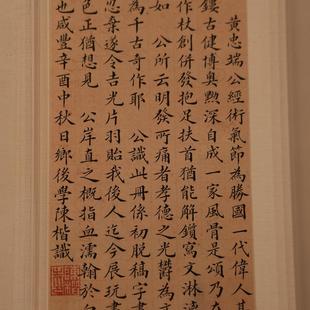 黃忠端公經術氣節為勝國一代偉人其
鏤古健博奧勲深自成一家風骨是頌乃在
作杖創併發抱足扶首猶能解鎖寫文淋漓
如　公所云明發所痛者孝德之光欝為文
為千古奇作耶　公識此冊係初脫稿字畫
忽棄遂令吉光片羽貽我後人迄今展玩畫
色正猶想見　公岸直之概指血濡翰於白
也咸豐辛酉中秋日鄉後學陳楷識